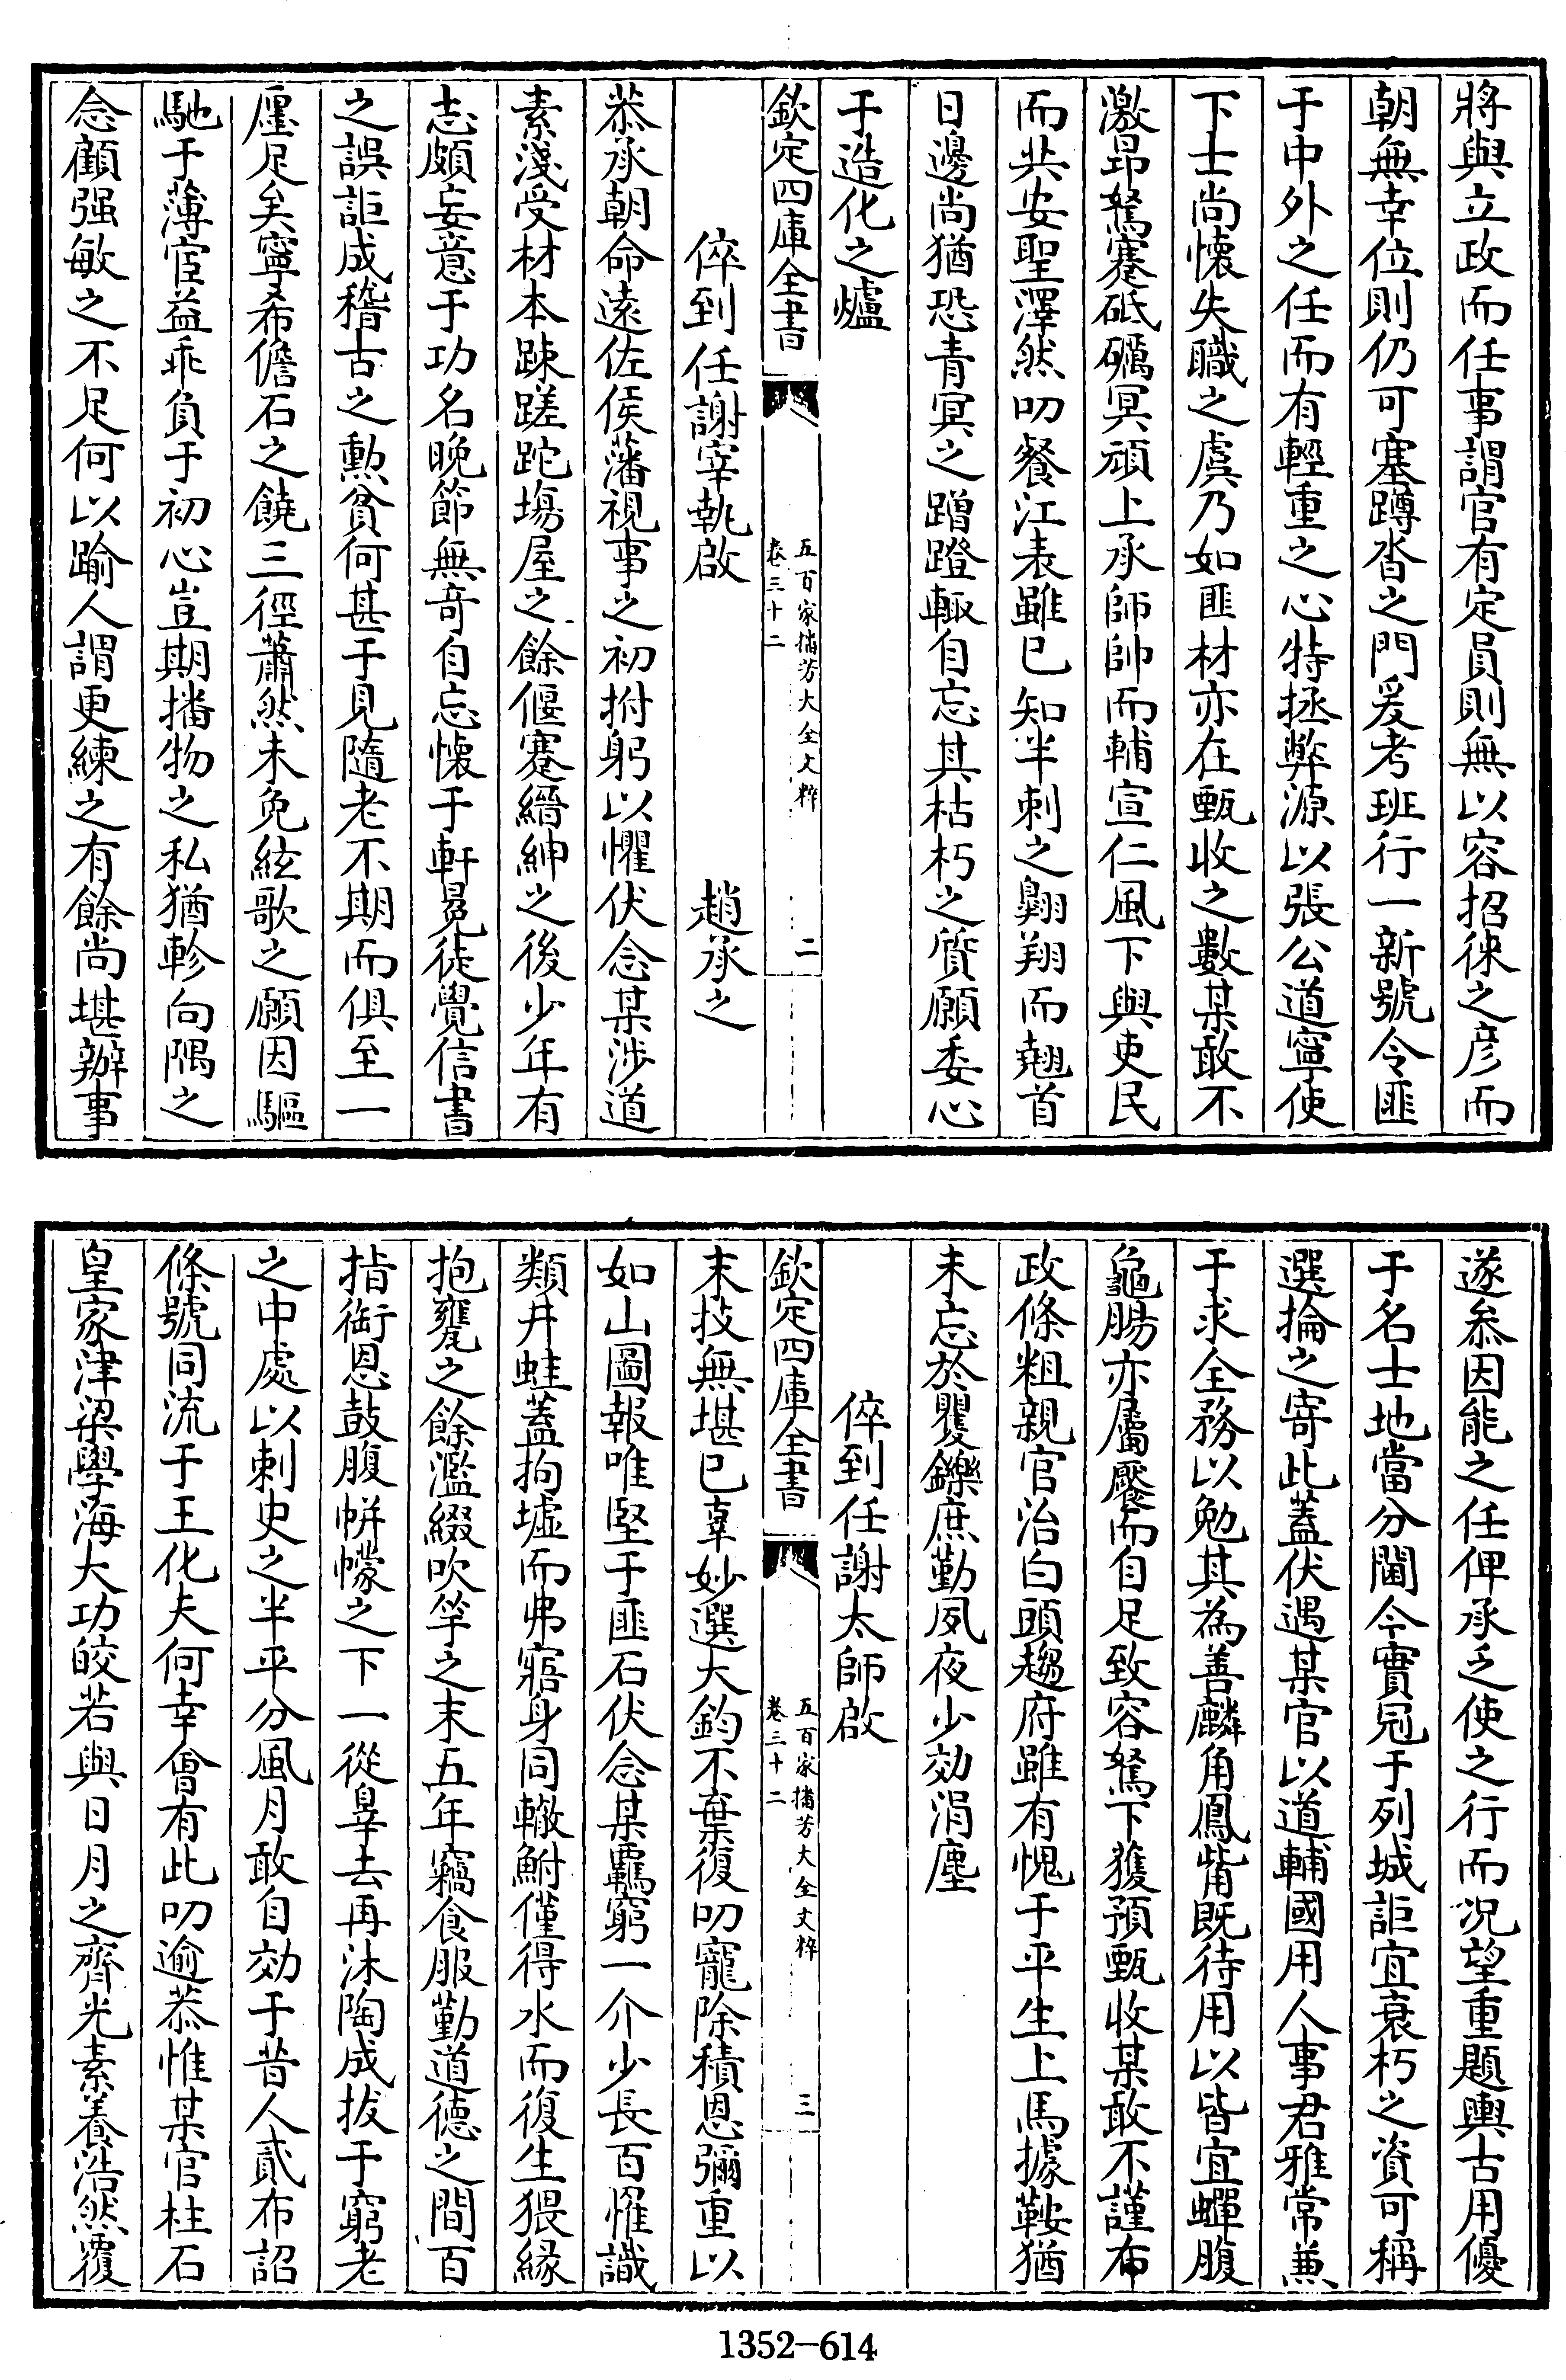 將與立政而任事謂官有定員則無以容招徠之彦而
朝無幸位則仍可塞蹲沓之門爰考班行一新號令匪
于中外之任而有輕重之心特拯弊源以張公道寧使
下士尚懐失職之虞乃如匪材亦在甄收之數某敢不
激昂駑蹇砥礪冥頑上承師帥而輔宣仁風下與吏民
而共安聖澤然叨餐江表雖已知半刺之翺翔而翹首
日邊尚猶恐青冥之蹭蹬輙自忘其枯朽之質願委心
于造化之爐
欽定四庫全書
五百家播芳大全文粹
卷三十二
二
倅到任謝宰執啟
趙承之
恭承朝命逺佐侯藩視事之初拊躬以懼伏念某涉道
素淺受材本踈蹉跎塲屋之餘偃蹇縉紳之後少年有
志頗妄意于功名晚節無竒自忘懐于軒冕徒覺信書
之誤詎成稽古之勲貧何甚于見隨老不期而俱至一
廛足矣寧希儋石之饒三徑蕭然未免絃歌之願因驅
馳于薄宦益乖負于初心豈期播物之私猶軫向隅之
念顧强敏之不足何以踰人謂更練之有餘尚堪辦事
遂叅因能之任俾承乏使之行而况望重題輿古用優
于名士地當分閫今實冠于列城詎宜衰朽之資可稱
選掄之寄此蓋伏遇某官以道輔國用人事君雅常兼
于求全務以勉其為善麟角鳳觜既待用以皆宜蟬腹
龜腸亦屬饜而自足致容駑下獲預甄收某敢不謹布
政條粗親官治白頭趨府雖有愧于平生上馬據鞍猶
未忘於矍鑠庶勤夙夜少効涓塵
倅到任謝太師啟
欽定四庫全書
五百家播芳大全文粹
卷三十二
三
末技無堪已辜妙選大鈞不棄復叨寵除積恩彌重以
如山圖報唯堅于匪石伏念某羈窮一介少長百罹識
類井蛙蓋拘墟而弗寤身同轍鮒僅得水而復生猥縁
抱甕之餘濫綴吹竽之末五年竊食服勤道德之間百
指銜恩鼓腹帡幪之下一從辠去再沐陶成拔于窮老
之中處以刺史之半平分風月敢自効于昔人貳布詔
條號同流于王化夫何幸㑹有此叨逾恭惟某官柱石
皇家津梁學海大功皎若與日月之齊光素養浩然覆
1352-614